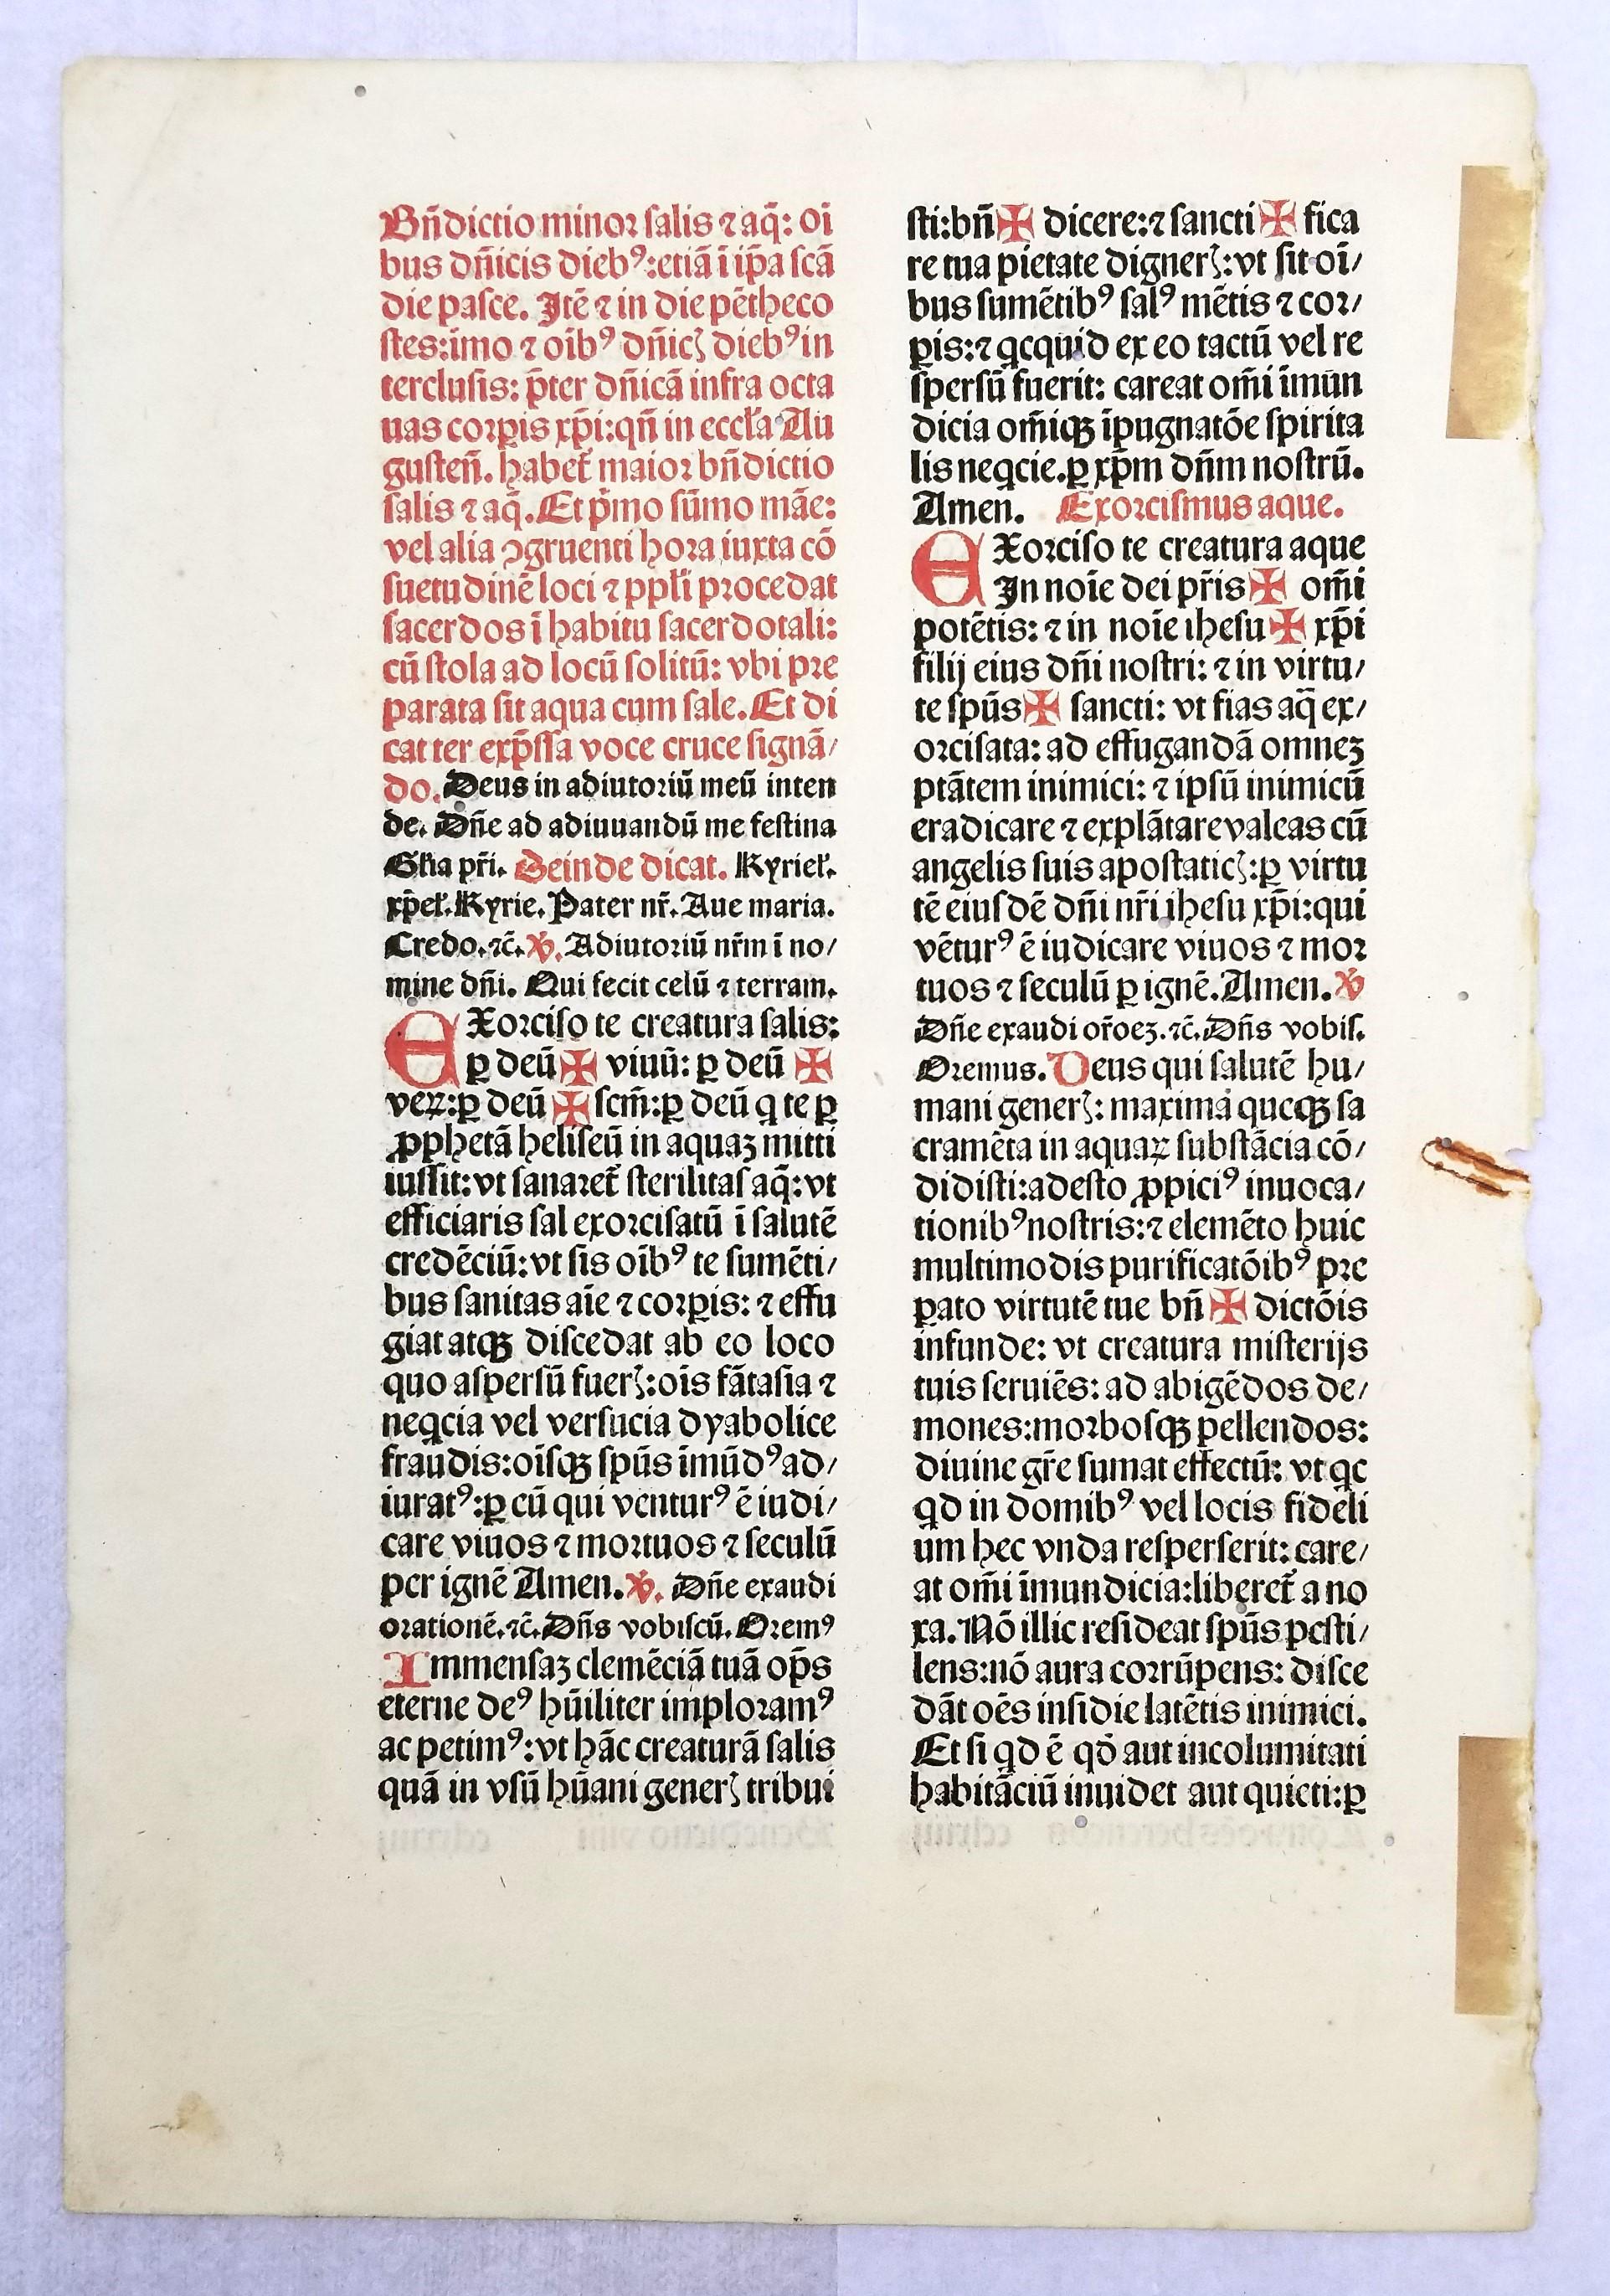 Bn̄dictio minor salis ⁊ aq̄: oī
bus dn̄icis diebꝰ: etiā ī ip̄a scā
die pasce. Itē ⁊ in die pētheco
stes: īmo ⁊ oībꝰ dn̄icꝭ diebꝰ in
terclusis: p̄ter dn̄icā infra octa
uas corꝑis xp̄i: qn̄ in eccła Au
gusten̄. habet᷑ maior bn̄dictio
salis ⁊ aq̄. Et pͥmo sūmo māe:
vel alia ꝯgruenti hora iuxta cō
suetudinē loci ⁊ ppłi procedat
sacerdos ī habitu sacerdotali:
cū stola ad locū solitū: vbi pre
parata sit aqua cum sale. Et di
cat ter exp̄ssa voce cruce signā/
do. Deus in adiutoriū meū inten
de. Dn̄e ad adiuuandū me festina
Głia pr̄i. Deinde dicat. Kyrieł.
xp̄eł. Kyrie. Pater nr̄. Aue maria.
Credo. ⁊c̄. ℣. Adiutoriū nr̄m ī no/
mine dn̄i. Qui fecit celū ⁊ terram.
EXorciso te creatura salis:
ꝑ deū ✠ viuū: ꝑ deū ✠
veꝝ: ꝑ deū ✠ scm̄: ꝑ deū q te ꝑ
ꝓphetā heliseū in aquaꝫ mitti
iussit: vt sanaret᷑ sterilitas aq̄: vt
efficiaris sal exorcisatū ī salutē
credēciū: vt sis oībꝰ te sumēti/
bus sanitas aīe ⁊ corꝑis: ⁊ effu
giat atqꝫ discedat ab eo loco
quo aspersū fuerꝭ: oīs fātasia ⁊
neqcia vel versucia dyabolice
fraudis: oīsqꝫ spūs īmūdꝰ ad/
iuratꝰ: ꝑ eū qui venturꝰ ē iudi/
care viuos ⁊ mortuos ⁊ seculū
per ignē Amen. ℣. Dn̄e exaudi
orationē. ⁊c̄. Dn̄s vobiscū. Oremꝰ
Immensaꝫ clemēciā tuā op̄s
eterne deꝰ hūiliter imploramꝰ
ac petimꝰ: vt hāc creaturā salis
quā in vsū hūani generꝭ tribui
sti: bn̄ ✠ dicere: ⁊ sancti ✠ fica
re tua pietate dignerꝭ: vt sit oī/
bus sumētibꝰ salꝰ mētis ⁊ cor/
ꝑis: ⁊ qcquid ex eo tactū vel re
spersū fuerit: careat om̄i īmun
dicia om̄iqꝫ īpugnatōe spirita
lis neqcie. ꝑ xp̄m dn̄m nostrū.
Amen. Exorcismus aque.
EXorciso te creatura aque
In noīe dei pr̄is ✠ om̄i
potētis: ⁊ in noīe ihesu ✠ xp̄i
filij eius dn̄i nostri: ⁊ in virtu/
te spūs ✠ sancti: vt fias aq̄ ex/
orcisata: ad effugandā omneꝫ
ptātem inimici: ⁊ ipsū inimicū
eradicare ⁊ explātare valeas cū
angelis suis apostaticꝭ: ꝑ virtu
tē eiusdē dn̄i nr̄i ihesu xp̄i: qui
vēturꝰ ē iudicare viuos ⁊ mor
tuos ⁊ seculū ꝑ ignē. Amen. ℣
Dn̄e exaudi or̄oeꝫ. ⁊c̄. Dn̄s vobis.
Oremus. Deus qui salutē hu/
mani generꝭ: maxima queqꝫ sa
cramēta in aquaꝝ substācia cō/
didisti: adesto ꝓpiciꝰ inuoca/
tionibꝰ nostris: ⁊ elemēto huic
multimodis purificatōibꝰ pre
ꝑato virtutē tue bn̄ ✠ dictōis
infunde: vt creatura misterijs
tuis seruiēs: ad abigēdos de/
mones: morbosqꝫ pellendos:
diuine gr̄e sumat effectū: vt qc
qd in domibꝰ vel locis fideli
um hec vnda resperserit: care/
at om̄i īmundicia: liberet᷑ a no
xa. Nō illic resideat spūs pesti/
lens: nō aura corrūpens: disce
dāt oēs insidie latētis inimici.
Et si qd ē qð aut incolumitati
habitāciū inuidet aut quieti: ꝑ